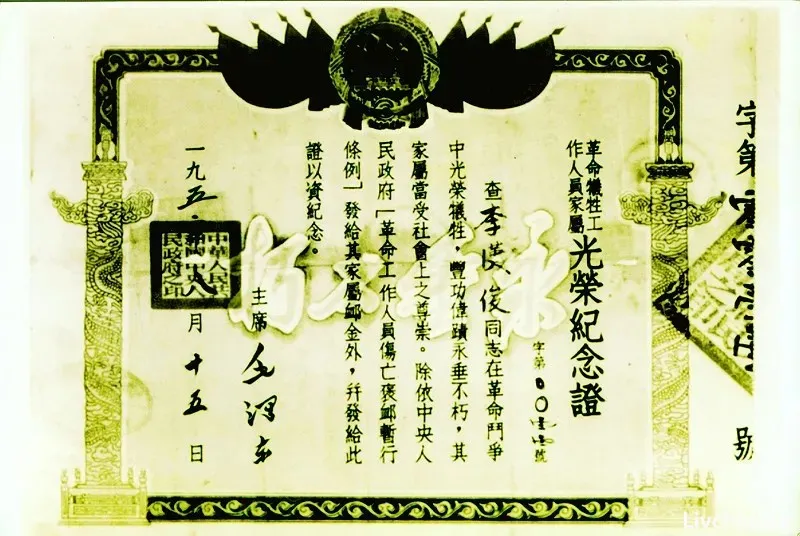 字第
號
革命犧牲工
作人員家屬
光榮紀念證
字第〇〇號
查李漢俊同志在革命鬥爭
中光榮犧牲,豐功偉蹟永垂不朽,其
家屬當受社會上之尊崇。除依中央人
民政府「革命工作人員傷亡褒卹暫行
條例」發給其家屬卹金外,幷發給此
證以資紀念。
主席 毛澤東
一九五
月十五日
中華人民共
和國中央人
民政府之印
永垂不朽